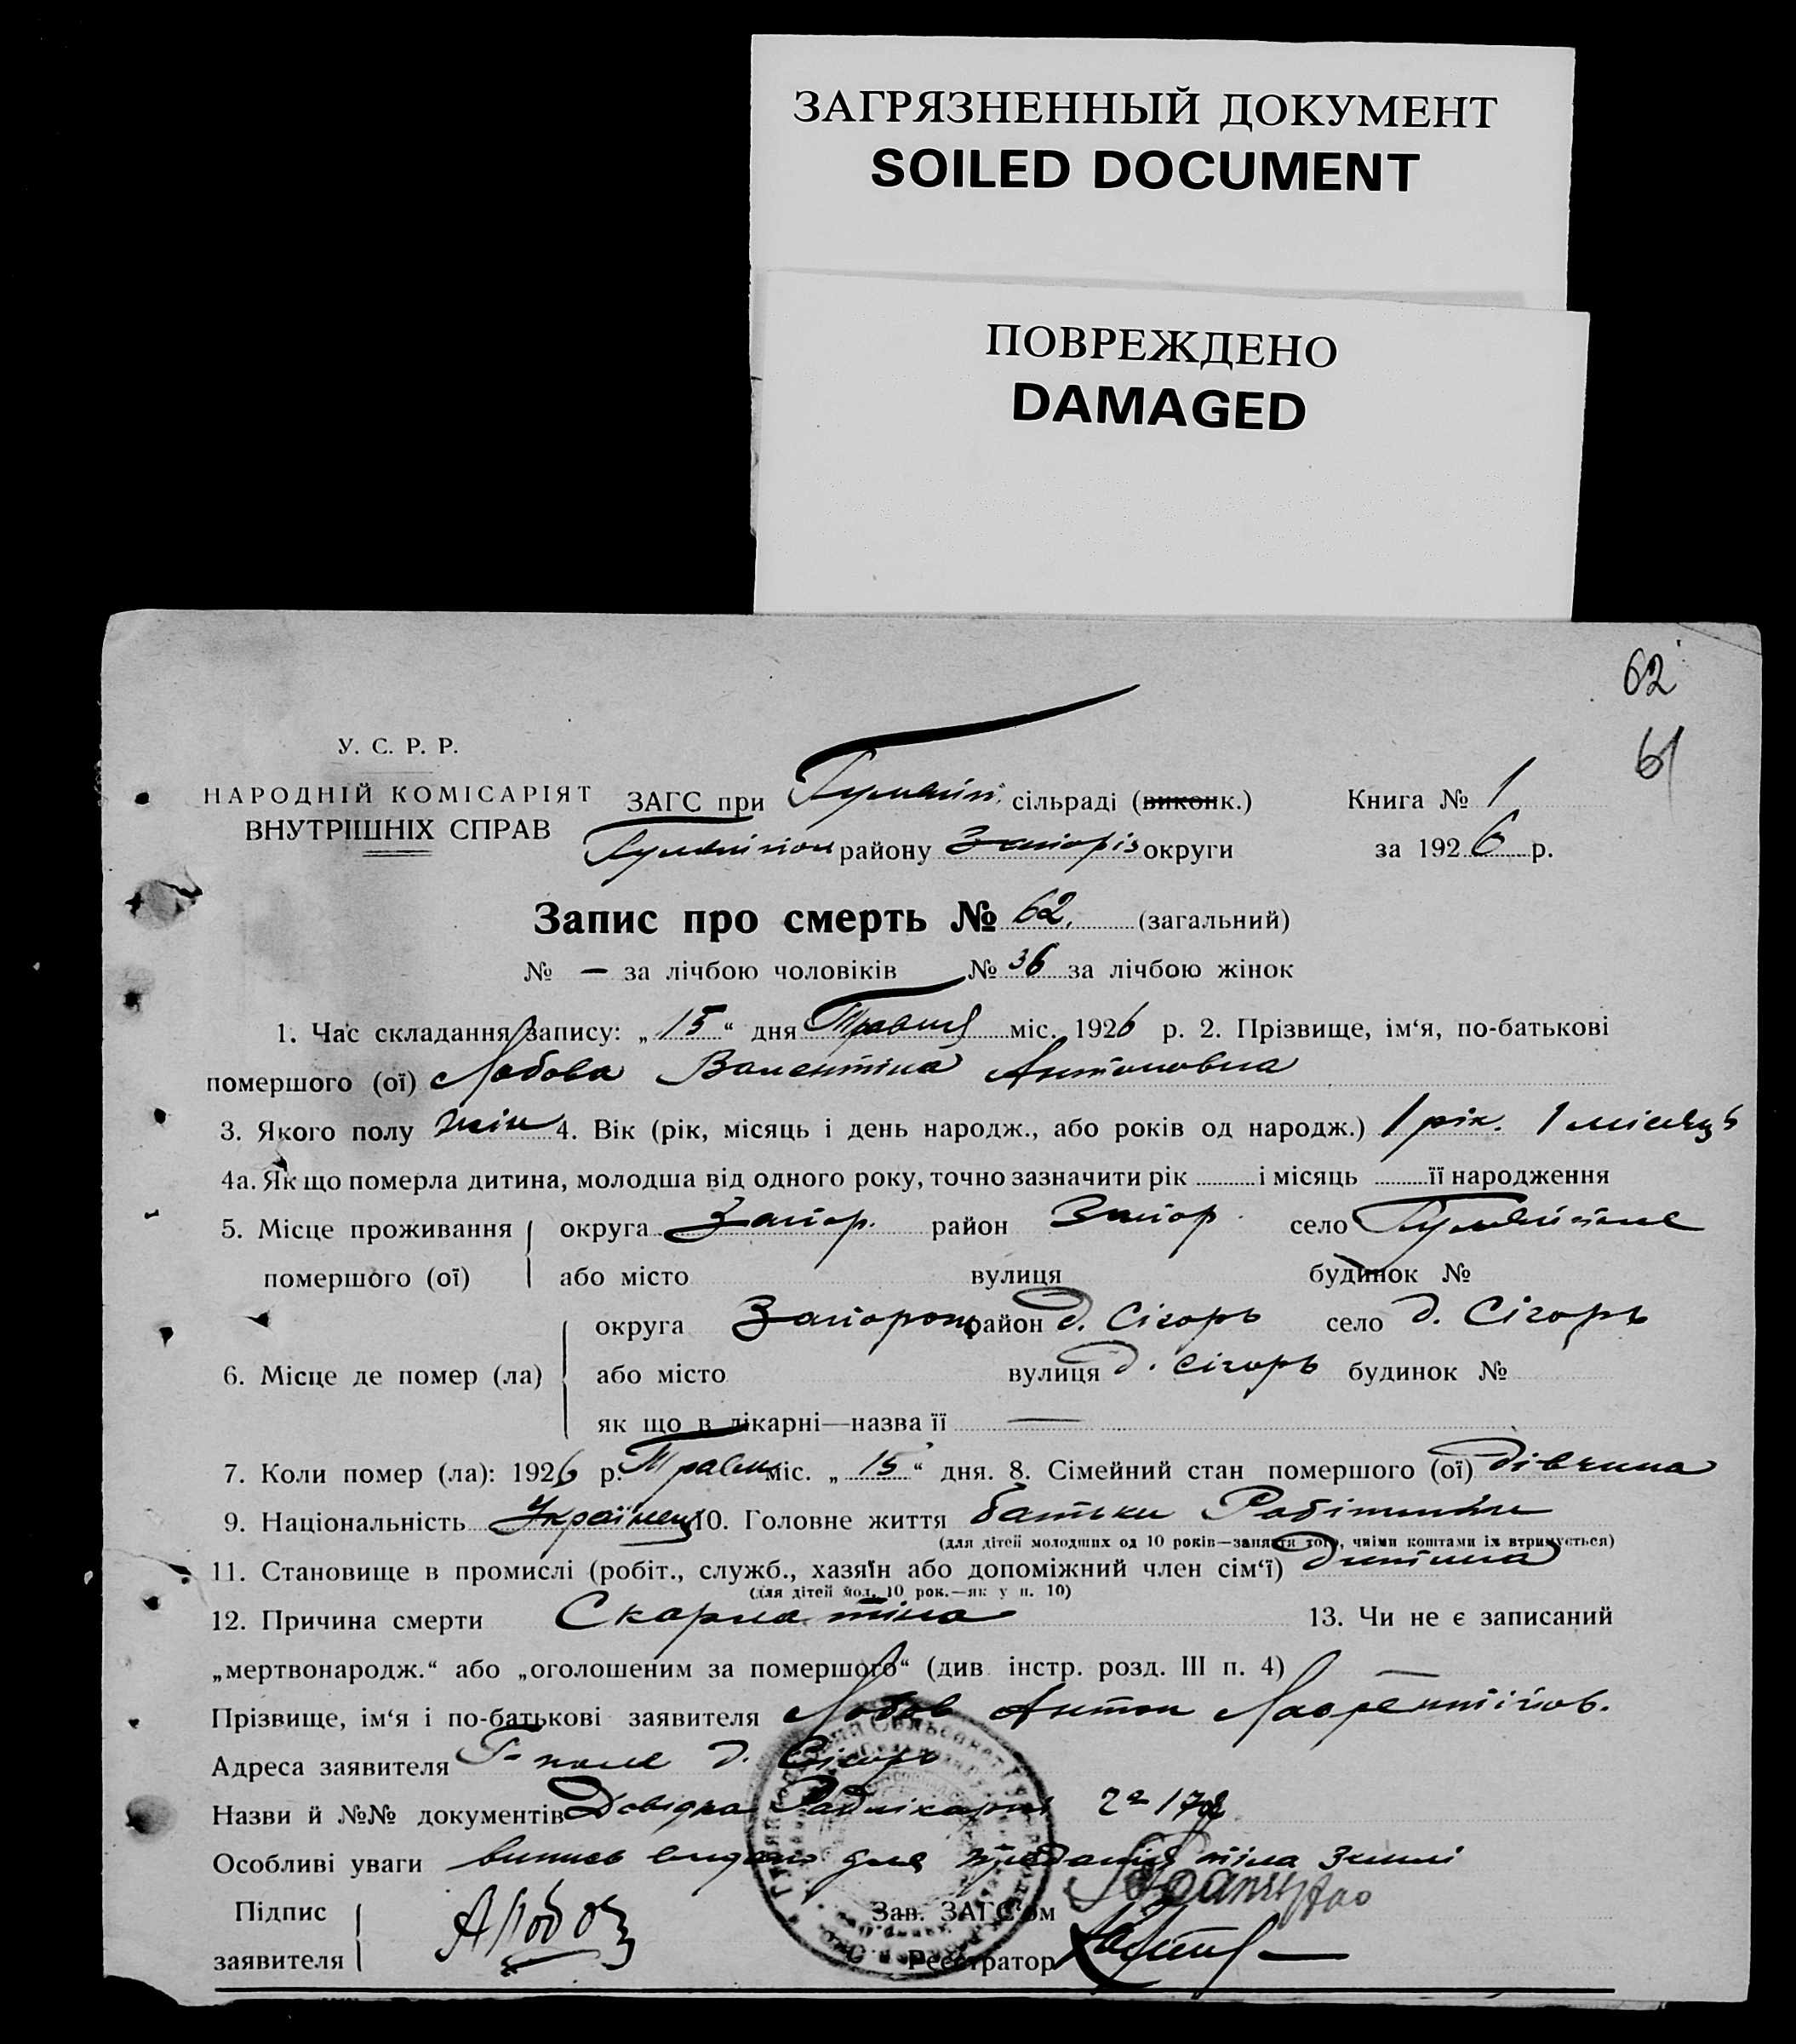 ЗАГРЯЗНЕННЫЙ ДОКУМЕНТ
SOILED DOCUMENT
ПОВРЕЖДЕНО
DAMAGED
62
61
У. С. Р. Р.
НАРОДНІЙ КОМІСАРІЯТ
ВНУТРІШНІХ СПРАВ
ЗАГС при сільраді (виконк.) Книга № 1
району Запоріз округи за 1926 р.
Запис про смерть № 62. (загальний)
№ — за лічбою чоловіків № 36 за лічбою жінок
1. Час складання запису: „15“ дня Травня міс. 1926 р. 2. Прізвище, ім‘я, по-батькові
помершого (ої) Лобова Валентіна Антоновна
3. Якого полу жін 4. Вік (рік, місяць і день народж., або років од народж.) 1 рік. 1 місяць
4а. Як що померла дитина, молодша від одного року, точно зазначити рік і місяць її народження
5. Місце проживання округа Запор. район Запор. село
помершого (ої) або місто вулиця будинок №
округа район д. Сігорь село д. Сігорь
6. Місце де помер (ла) або місто вулиця д. Сігорь будинок №
як що в лікарні—назва її —
7. Коли помер (ла): 1926 р. Травн міс. „15“ дня. 8. Сімейний стан помершого (ої) дівчина
9. Національність Українец 10. Головне життя батьки
(для дітей молодших од 10 років—заняття того, чиїми коштами їх втримується)
11. Становище в промислі (робіт., служб., хазяїн або допоміжний член сім‘ї) дитина
(для дітей мол. 10 рок.—як у п. 10)
12. Причина смерти Скарлатіна 13. Чи не є записаний
„мертвонародж.“ або „оголошеним за помершого“ (див. інстр. розд. III п. 4)
Прізвище, ім‘я і по-батькові заявителя Лобов Антон Лаврентійов.
Адреса заявителя Г-поле д. Сігорь
Назви й №№ документів Довідка
Особливі уваги випись видано для тіла землі
Підпис А Лобов Зав. ЗАГС‘ом
заявителя Реєстратор